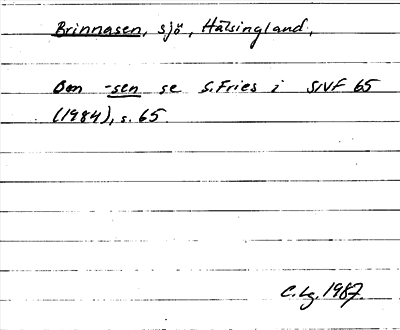 Brinnasen, sjö, Hälsingland,
Om -sen se S. Fries i SIVF 65
(1984), s. 65.
C. Lg. 1987.